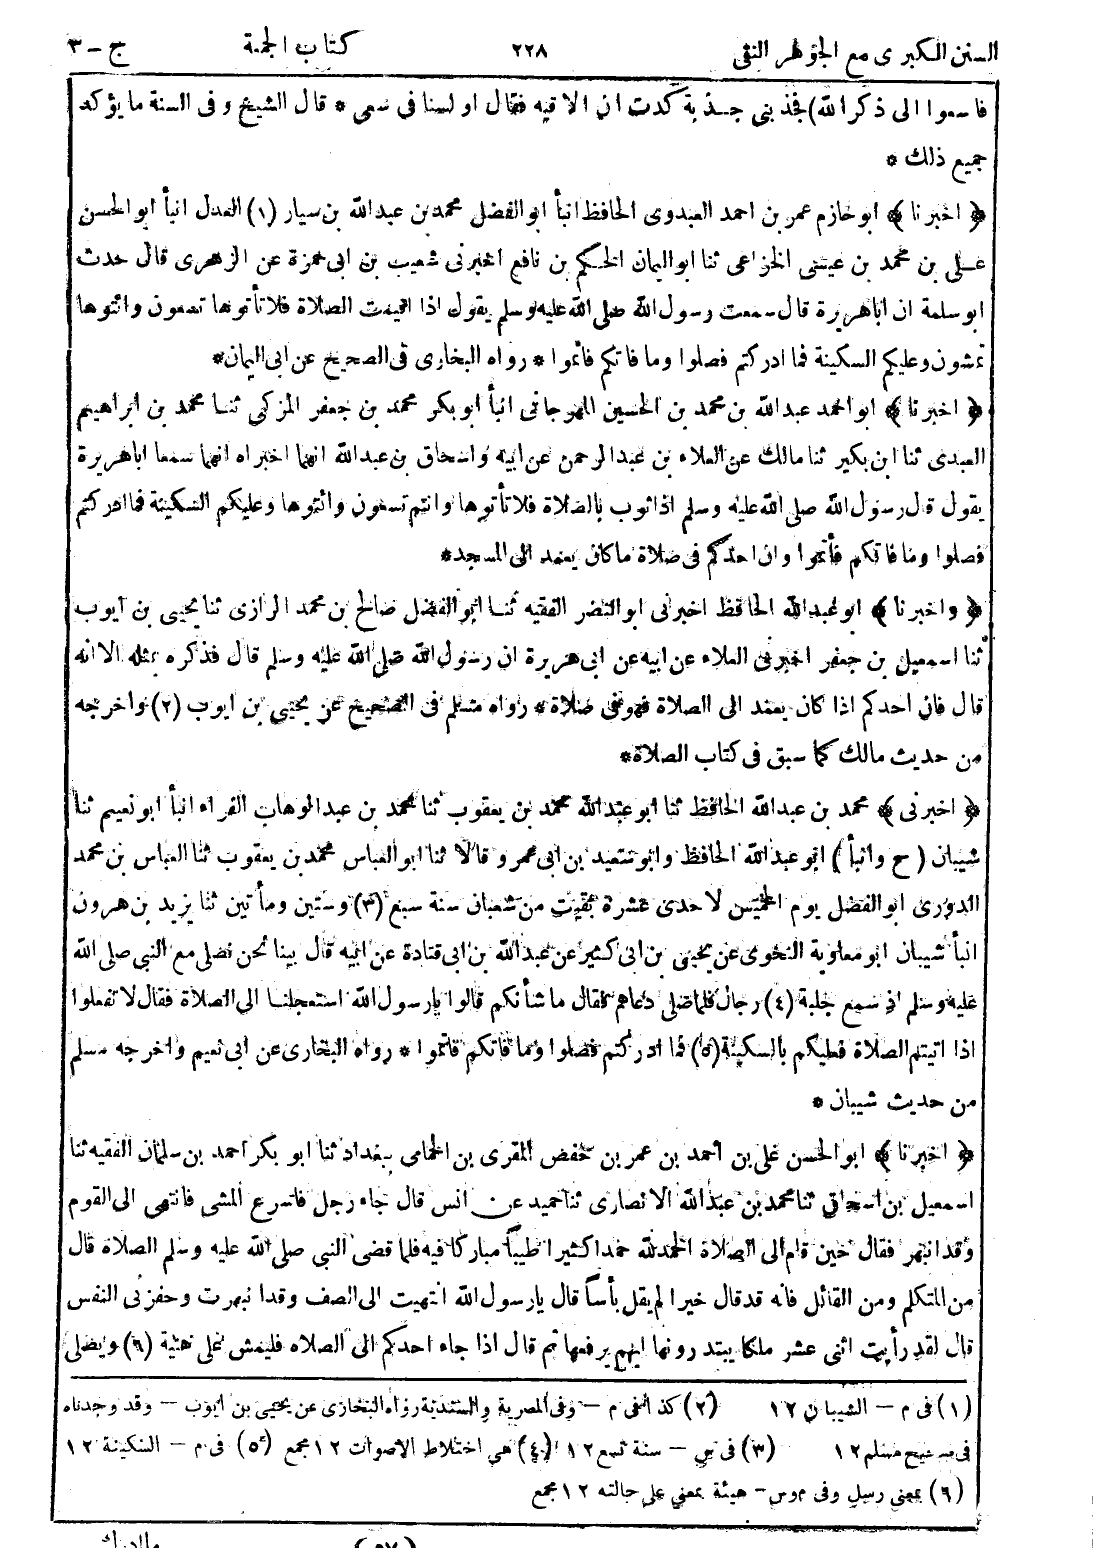 السنن الكبرى مع الجوهر النقى ٢٢٨ كتاب الجمعة ج - ٣
فاسعوا الى ذكر الله) فجذبنى جذبة كدت ان الاقيه فقال او لسنا فى سعى * قال الشيخ وفى السنة ما يؤكد
جميع ذلك *
﴿ اخبرنا ﴾ ابو حازم عمر بن احمد العبدوى الحافظ انبأ ابو الفضل محمد بن عبد الله بن سيار (١) العدل انبأ ابو الحسن
على بن محمد بن عيسى الخزاعى ثنا ابو اليمان الحكم بن نافع اخبرنى شعيب بن ابى حمزة عن الزهرى قال حدث
ابو سلمة ان اباهريرة قال سمعت رسول الله صلى الله عليه وسلم يقول اذا اقيمت الصلاة فلا تأتوها تسعون وائتوها
تمشون وعليكم السكينة فما ادركتم فصلوا وما فاتكم فاتموا * رواه البخارى فى الصحيح عن ابى اليمان *
﴿ اخبرنا ﴾ ابو احمد عبد الله بن محمد بن الحسين المهرجانى انبأ ابو بكر محمد بن جعفر المزكى ثنا محمد بن ابراهيم
العبدى ثنا ابن بكير ثنا مالك عن العلاء بن عبد الرحمن عن ابيه واسحاق بن عبد الله انهما اخبراه انهما سمعا اباهريرة
يقول قال رسول الله صلى الله عليه وسلم اذا ثوب بالصلاة فلا تأتوها وانتم تسعون وائتوها وعليكم السكينة فما ادركتم
فصلوا وما فاتكم فأتموا وان احدكم فى صلاة ما كان يعمد الى المسجد *
﴿ واخبرنا ﴾ ابو عبد الله الحافظ اخبرنى ابو النضر الفقيه ثنا ابو الفضل صالح بن محمد الرازى ثنا يحيى بن ايوب
ثنا اسمعيل بن جعفر اخبرنى العلاء عن ابيه عن ابى هريرة ان رسول الله صلى الله عليه وسلم قال فذكره بمثله الا انه
قال فان احدكم اذا كان يعمد الى الصلاة فهو فى صلاة * رواه مسلم فى الصحيح عن يحيى بن ايوب (٢) واخرجه
من حديث مالك كما سبق فى كتاب الصلاة *
﴿ اخبرنى ﴾ محمد بن عبد الله الحافظ ثنا ابو عبد الله محمد بن يعقوب ثنا محمد بن عبد الوهاب الفراء انبأ ابو نعيم ثنا
شيبان ( ح وانبأ ) ابو عبد الله الحافظ وابو سعيد بن ابى عمرو قالا ثنا ابو العباس محمد بن يعقوب ثنا العباس بن محمد
الدورى ابو الفضل يوم الخميس لاحدى عشرة بقيت من شعبان سنة سبع (٣) وستين ومأتين ثنا يزيد بن هرون
انبأ شيبان ابو معاوية النحوى عن يحيى بن ابى كثير عن عبد الله بن ابى قتادة عن ابيه قال بينا نحن نصلى مع النبى صلى الله
عليه وسلم اذ سمع جلبة (٤) رجال فلما صلى دعاهم فقال ما شأنكم قالوا يارسول الله استعجلنا الى الصلاة فقال لا تفعلوا
اذا اتيتم الصلاة فعليكم بالسكينة (٥) فما ادركتم فصلوا وما فاتكم فاتموا * رواه البخارى عن ابى نعيم واخرجه مسلم
من حديث شيبان *
﴿ اخبرنا ﴾ ابو الحسن على بن احمد بن عمر بن حفص المقرى بن الحمامى ببغداد ثنا ابو بكر احمد بن سلمان الفقيه ثنا
اسمعيل بن اسحاق ثنا محمد بن عبد الله الانصارى ثنا حميد عن انس قال جاء رجل فاسرع المشى فانتهى الى القوم
وقد انبهر فقال حين قام الى الصلاة الحمد لله حمدا كثيرا طيباً مباركا فيه فلما قضى النبى صلى الله عليه وسلم الصلاة قال
من المتكلم ومن القائل فانه قد قال خيرا لم يقل بأساً قال يارسول الله انتهيت الى الصف وقد انبهرت وحفزنى النفس
قال لقد رأيت اثنى عشر ملكا يبتدرونها ايهم يرفعها ثم قال اذا جاء احدكم الى الصلاه فليمش على هنيئة (٦) ويصلى
(١) فى م - الشيبان ١٢ (٢) كذا فى م - وفى المصرية والسندية رواه البخارى عن يحيى بن ايوب - وقد وجدناه
فى صحيح مسلم ١٢ (٣) فى س - سنة تسع ١٢ (٤) هى اختلاط الاصوات ١٢ مجمع (٥) فى م - السكينة ١٢
(٦) بمعنى رسل وفى م وس - هيئة بمعنى على حالته ١٢ مجمع